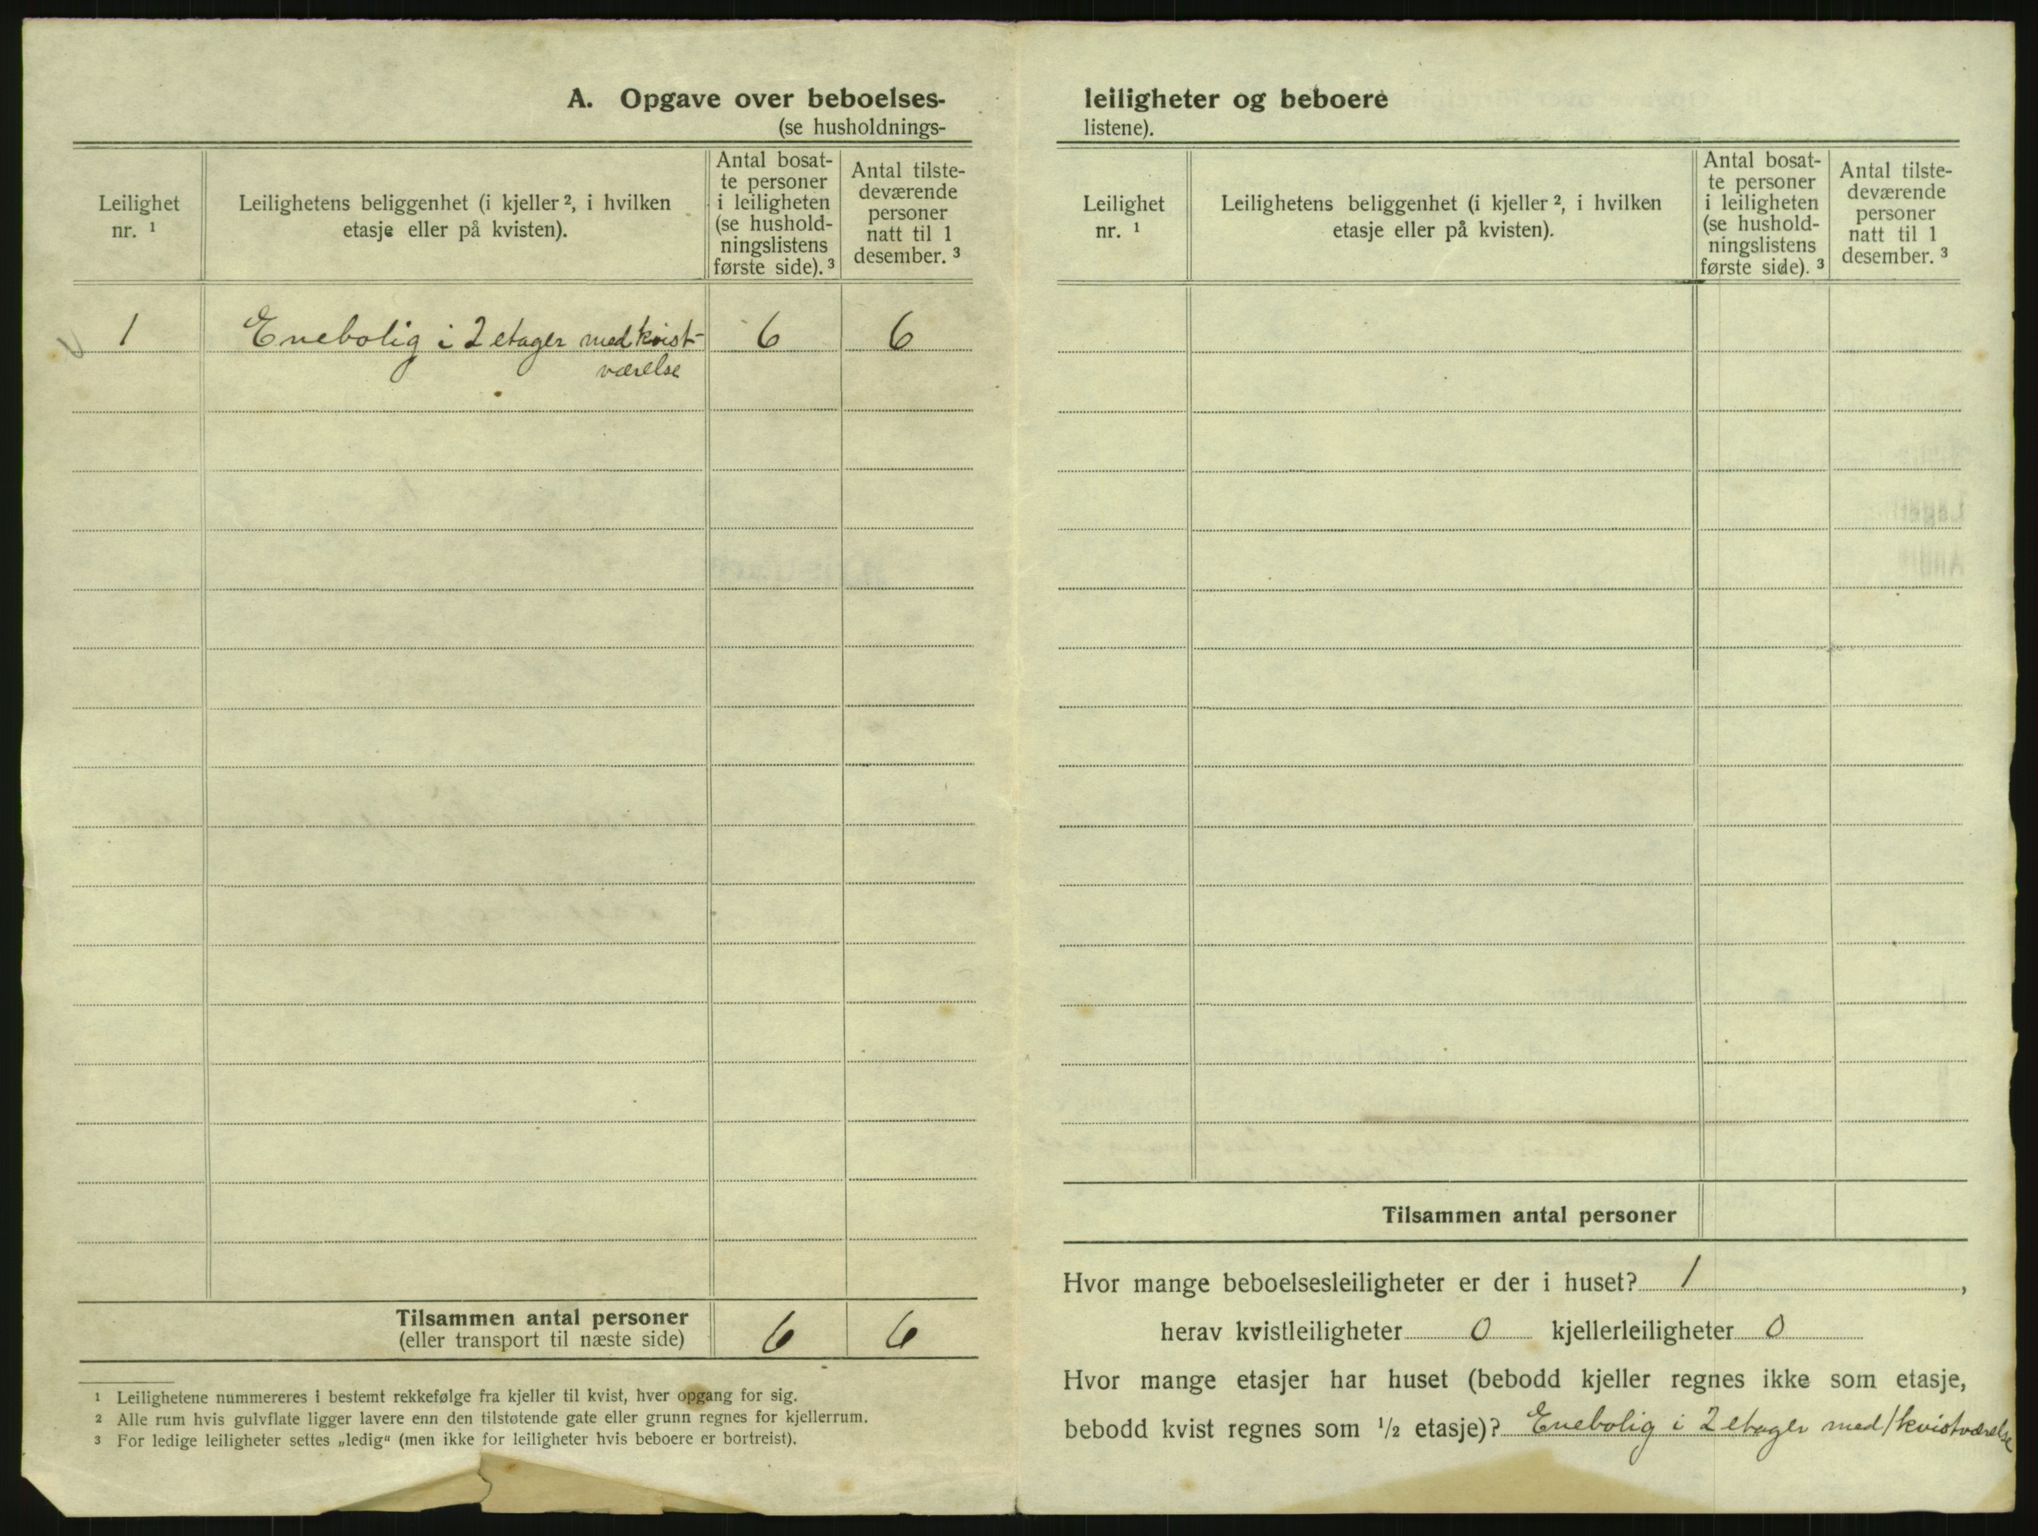 A. Opgave over beboelses-
(se husholdnings-
Leilighet
nr. ¹
Leilighetens beliggenhet (i kjeller ², i hvilken
etasje eller på kvisten).
Antal bosat-
te personer
i leiligheten
(se hushold-
ningslistens
første side). ³
Antal tilste-
deværende
personer
natt til 1
desember. ³
1 Enebolig i 2 etager med kvist- 6 6
værelse
Tilsammen antal personer
(eller transport til næste side) 6 6
¹ Leilighetene nummereres i bestemt rekkefølge fra kjeller til kvist, hver opgang for sig.
² Alle rum hvis gulvflate ligger lavere enn den tilstøtende gate eller grunn regnes for kjellerrum.
³ For ledige leiligheter settes „ledig“ (men ikke for leiligheter hvis beboere er bortreist).
leiligheter og beboere
listene).
Leilighet
nr. ¹
Leilighetens beliggenhet (i kjeller ², i hvilken
etasje eller på kvisten).
Antal bosat-
te personer
i leiligheten
(se hushold-
ningslistens
første side). ³
Antal tilste-
deværende
personer
natt til 1
desember. ³
Tilsammen antal personer
Hvor mange beboelsesleiligheter er der i huset? 1 ,
herav kvistleiligheter 0 kjellerleiligheter 0
Hvor mange etasjer har huset (bebodd kjeller regnes ikke som etasje,
bebodd kvist regnes som ½ etasje)? Enebolig i 2 etager med 1 kvistværelse